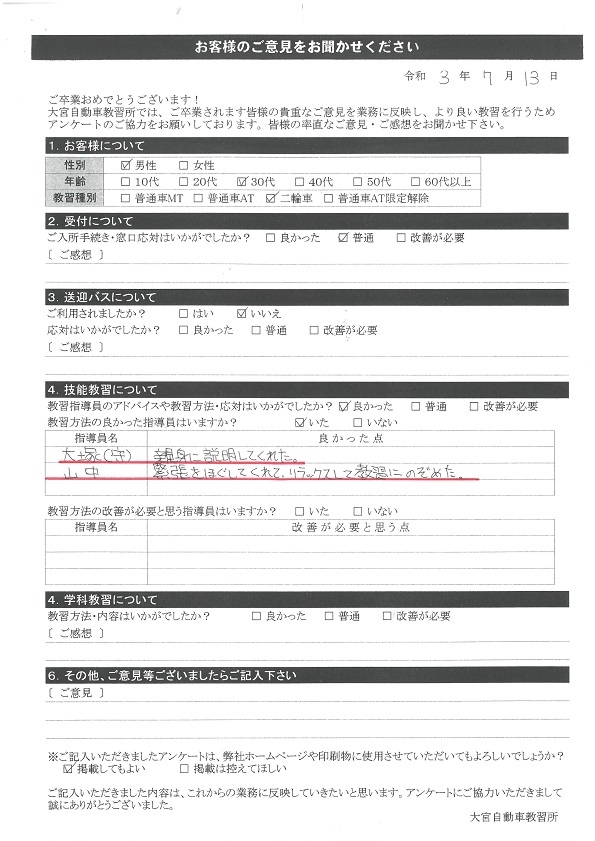 お客様のご意見をお聞かせください
令和 3 年 7 月 13 日
ご卒業おめでとうございます！
大宮自動車教習所では、ご卒業されます皆様の貴重なご意見を業務に反映し、より良い教習を行うため
アンケートのご協力をお願いしております。皆様の率直なご意見・ご感想をお聞かせ下さい。
1. お客様について
性別 ☑ 男性 □ 女性
年齢 □ 10代 □ 20代 ☑ 30代 □ 40代 □ 50代 □ 60代以上
教習種別 □ 普通車MT □ 普通車AT ☑ 二輪車 □ 普通車AT限定解除
2. 受付について
ご入所手続き・窓口応対はいかがでしたか？ □ 良かった ☑ 普通 □ 改善が必要
〔 ご感想 〕
3. 送迎バスについて
ご利用されましたか？ □ はい ☑ いいえ
応対はいかがでしたか？ □ 良かった □ 普通 □ 改善が必要
〔 ご感想 〕
4. 技能教習について
教習指導員のアドバイスや教習方法・応対はいかがでしたか？ ☑ 良かった □ 普通 □ 改善が必要
教習方法の良かった指導員はいますか？ ☑ いた □ いない
指導員名 良かった点
大塚(守) 親身に説明してくれた。
山中 緊張をほぐしてくれて、リラックスして教習にのぞめた。
教習方法の改善が必要と思う指導員はいますか？ □ いた □ いない
指導員名 改善が必要と思う点
4. 学科教習について
教習方法・内容はいかがでしたか？ □ 良かった □ 普通 □ 改善が必要
〔 ご感想 〕
6. その他、ご意見等ございましたらご記入下さい
〔 ご意見 〕
※ご記入いただきましたアンケートは、弊社ホームページや印刷物に使用させていただいてもよろしいでしょうか？
☑ 掲載してもよい □ 掲載は控えてほしい
ご記入いただきました内容は、これからの業務に反映していきたいと思います。アンケートにご協力いただきまして
誠にありがとうございました。
大宮自動車教習所